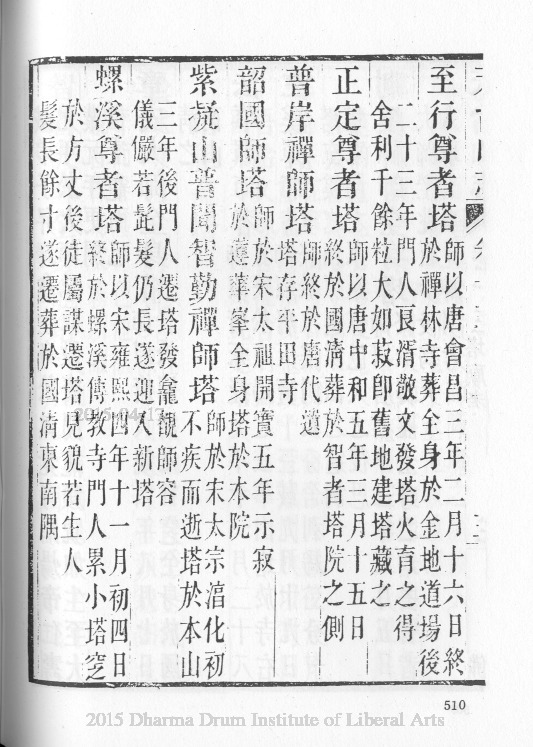 至行尊者塔師以唐會昌三年二月十六日終
於禪林寺葬全身於金地道場後
二十三年門人良湑敬文發塔火育之得
舍利千餘粒大如菽即舊地建塔藏之
正定尊者塔師以唐中和五年三月十五日
終於國清葬於智者塔院之側
普岸禪師塔師終於唐代遺
塔存平田寺
韶國師塔師於宋太祖開寶五年示寂
於蓮華峯全身塔於本院
紫凝山普聞智勤禪師塔師於宋太宗淳化初
不疾而逝塔於本山
三年後門人遷塔發龕覩師容
儀儼若髭髮仍長遂迎入新塔
螺溪尊者塔師以宋雍熙四年十一月初四日
終於螺溪傳教寺門人累小塔窆
於方丈後徒屬謀遷塔見貌若生人
髮長餘寸遂遷葬於國清東南隅
510
2015/04/17
2015 Dharma Drum Institute of Liberal Arts